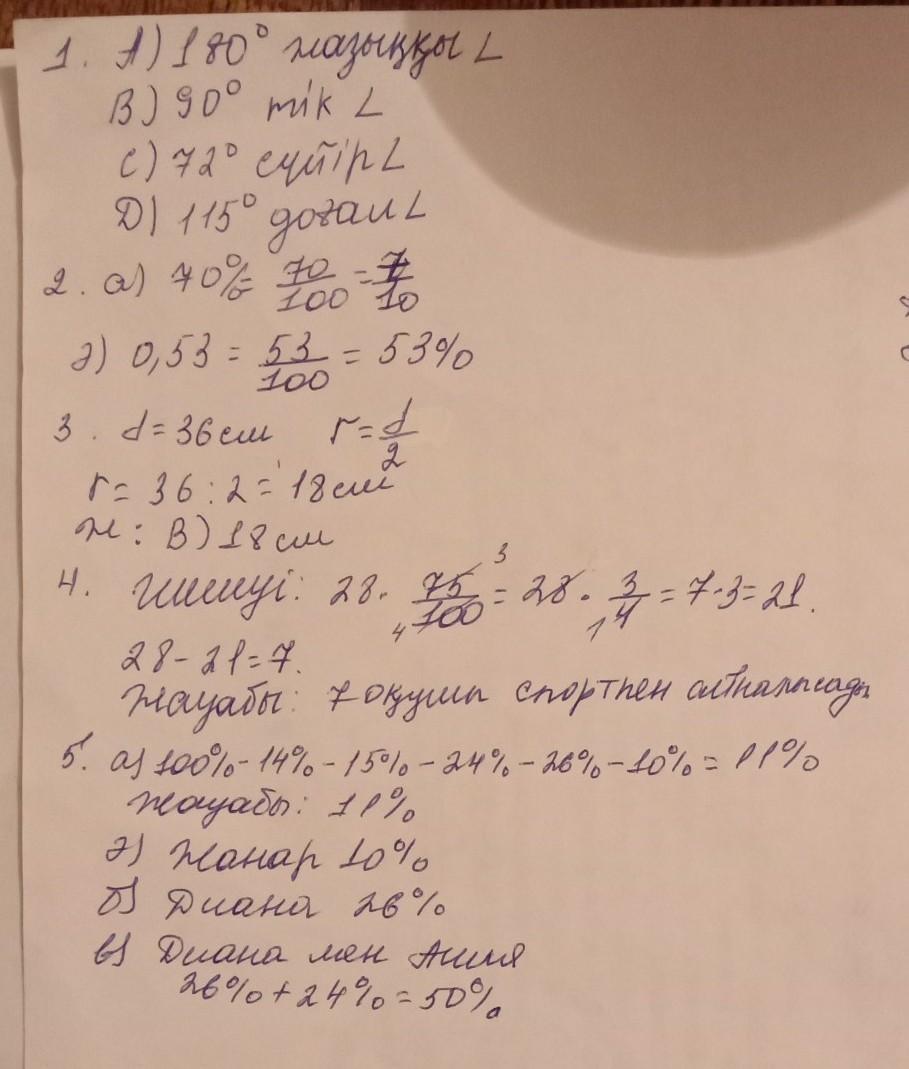 1. А) 180° жазыңқы ∠
В) 90° тік ∠
С) 72° сүйір ∠
D) 115° доғал ∠
2. а) 70% = 70/100 = 7/10
ә) 0,53 = 53/100 = 53%
3. d = 36 см r = d/2
r = 36 : 2 = 18 см
ж : В) 18 см
4. Шешуі: 28 · 75/100 = 28 · 3/4 = 7·3 = 21.
28 - 21 = 7.
Жауабы: 7 оқушы спортпен айналысады
5. а) 100% - 14% - 15% - 24% - 26% - 10% = 11%
Жауабы: 11%
ә) Жанар 10%
б) Диана 26%
в) Диана мен Асия
26% + 24% = 50%